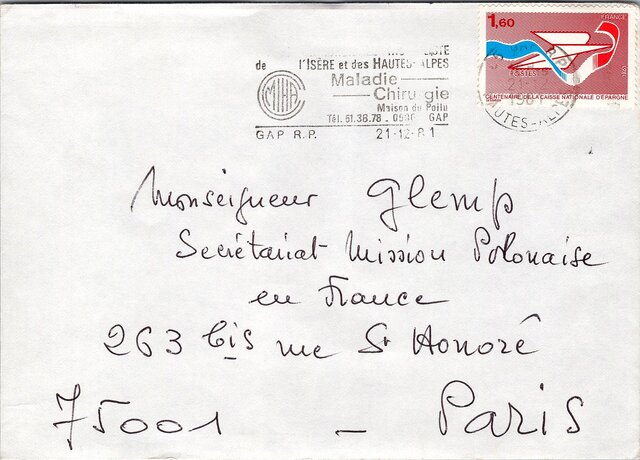 de l'ISÈRE et des HAUTES-ALPES
Maladie
Chirurgie
Maison du Poilu
Tél. 51.38.78 - GAP
GAP R.P. 21-12-81
1,60
FRANCE
POSTES
1981
HAUTES-ALPES
CENTENAIRE DE LA CAISSE NATIONALE D'ÉPARGNE
Monseigneur Glemp
Secrétariat Mission Polonaise
en France
263 bis rue St Honoré
75001 - Paris